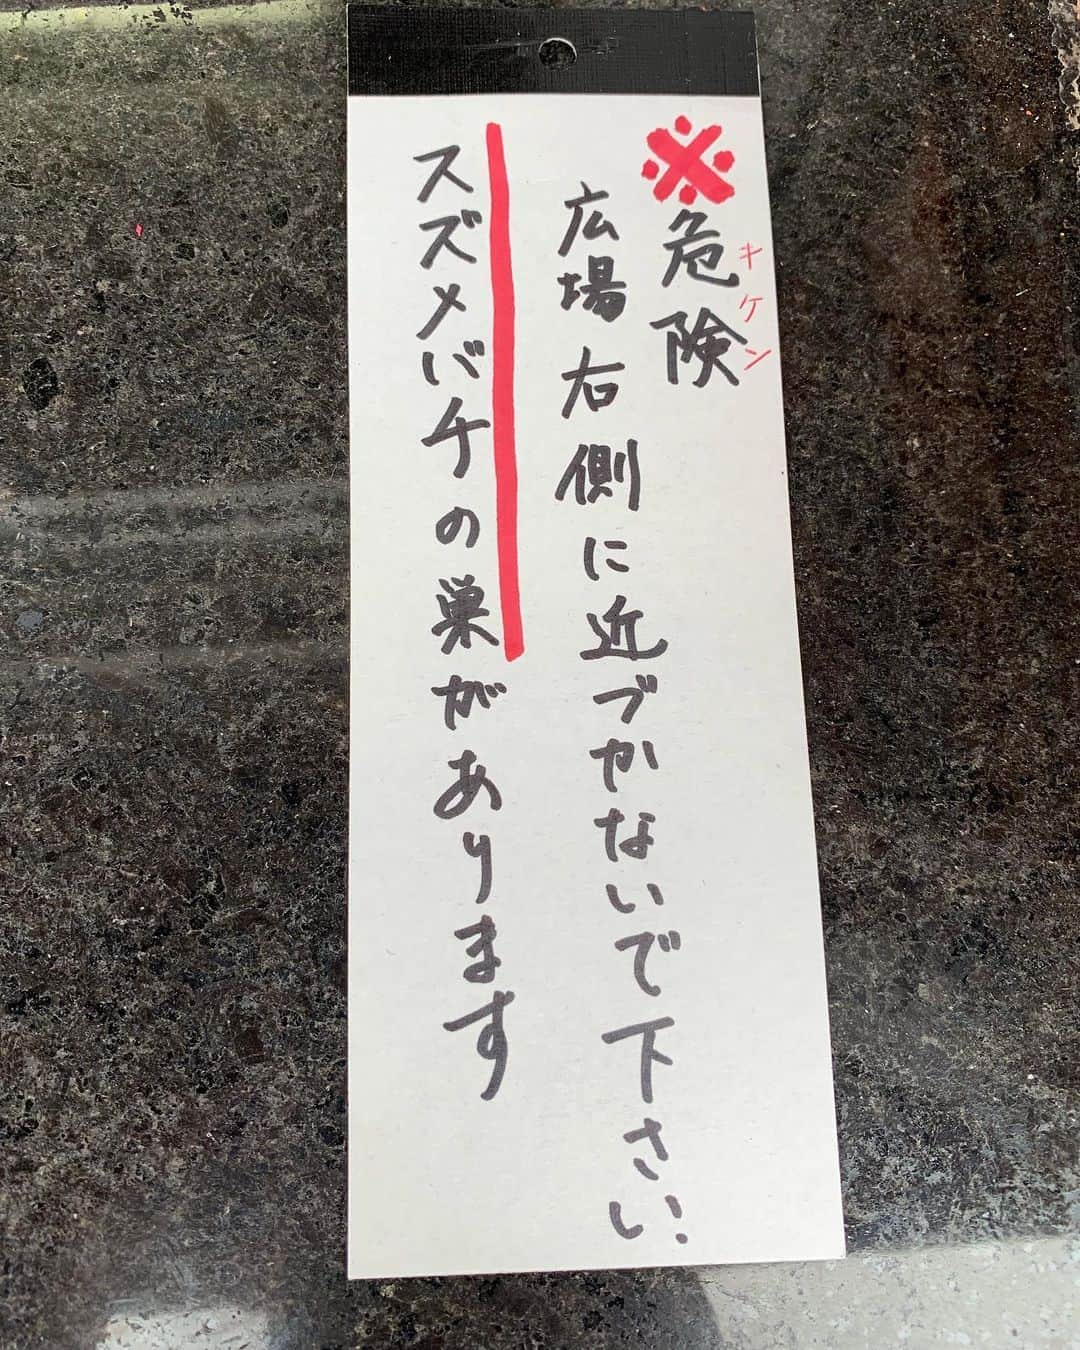 ※危険
キケン
広場右側に近づかないで下さい。
スズメバチの巣があります